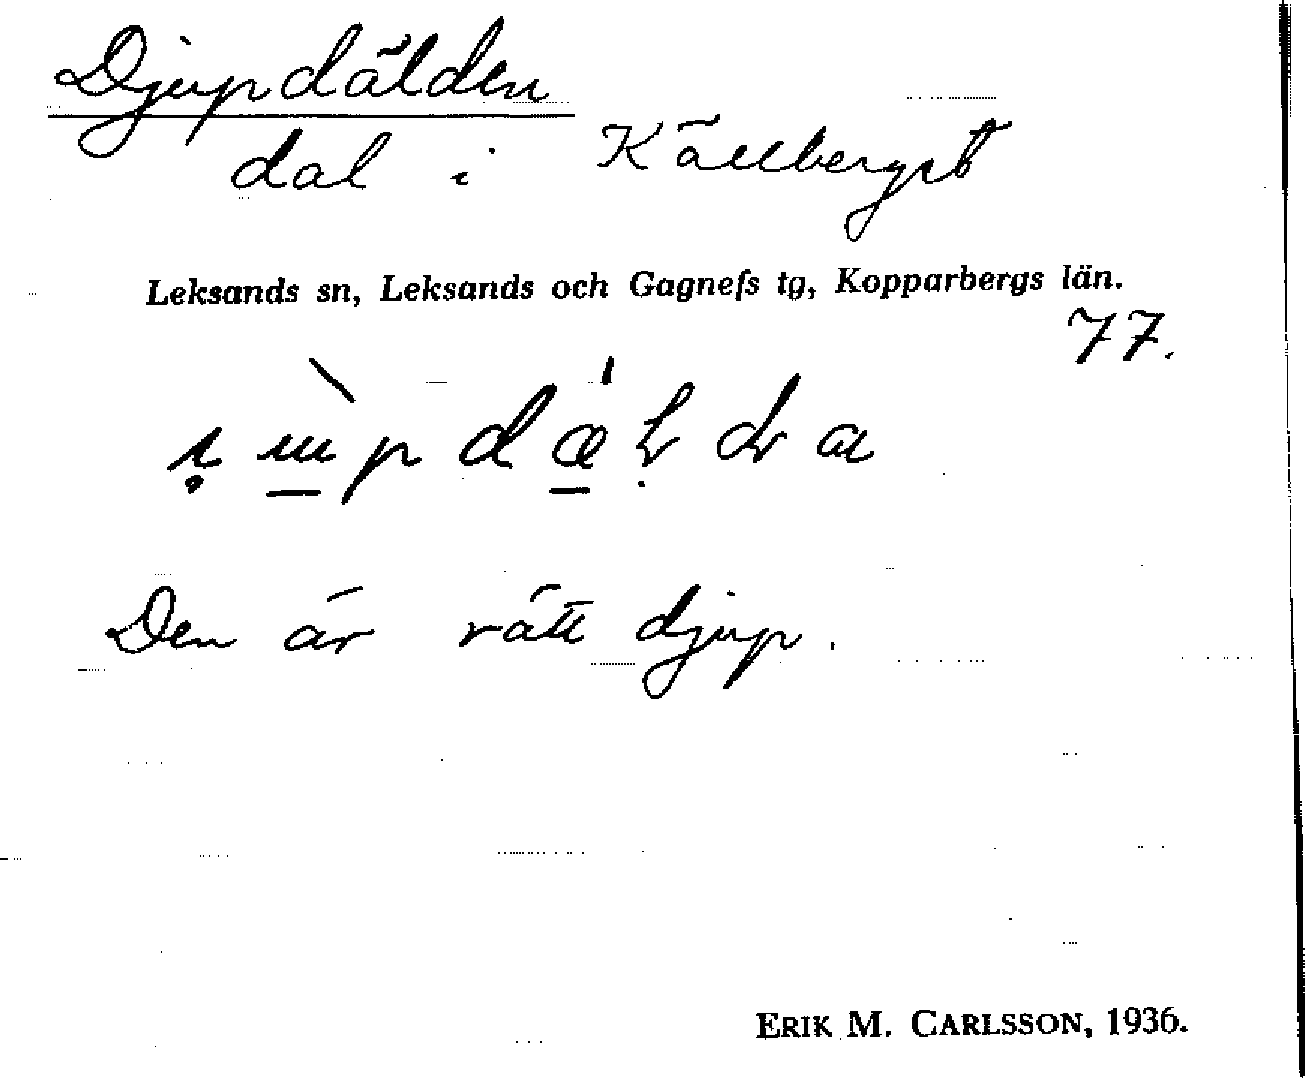 Djupdälden
dal i Källbergst
Leksands sn, Leksands och Gagnefs tg, Kopparbergs län.
77.
Den är rätt djup.
ERIK M. CARLSSON, 1936.